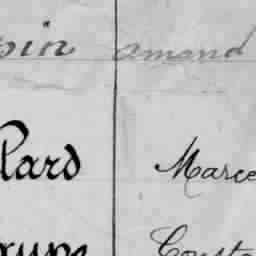 pin amand
lard Marce
rupe Consta